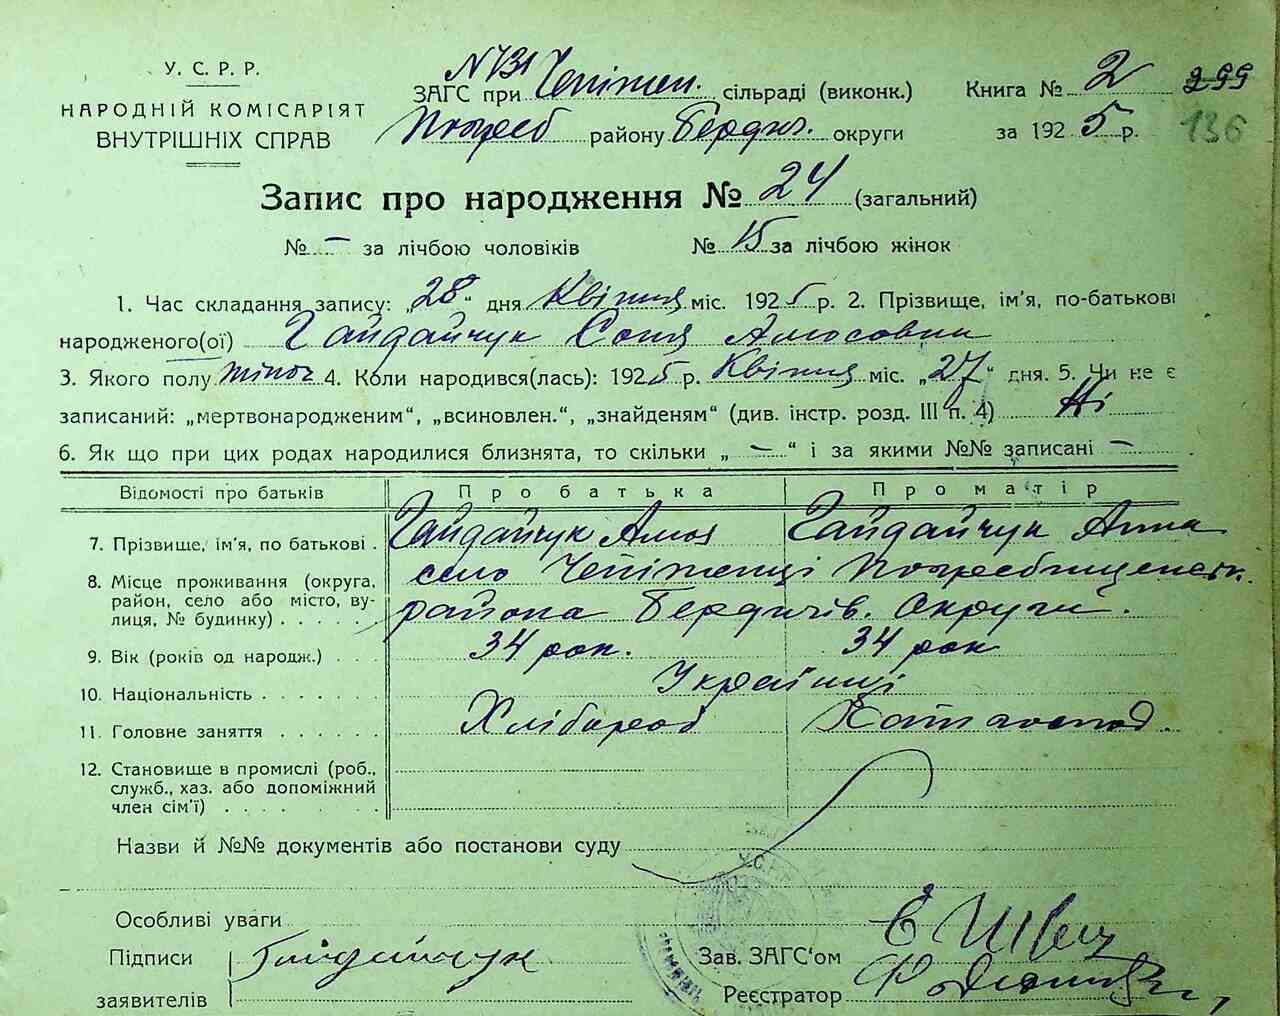 У. С. Р. Р.
НАРОДНІЙ КОМІСАРІЯТ
ВНУТРІШНІХ СПРАВ
ЗАГС при Чепіжен. сільраді (виконк.)
Погреб району Бердич. округи
Книга № 2
299
за 1925 р.
136
Запис про народження № 24 (загальний)
№ – за лічбою чоловіків № 15 за лічбою жінок
1. Час складання запису: „28“ дня Квітня міс. 1925 р. 2. Прізвище, ім'я, по-батькові
народженого(ої) Гайдайчук Соня Амосовна
3. Якого полу жіноч 4. Коли народився(лась): 1925 р. Квітня міс. „27“ дня. 5. Чи не є
записаний: „мертвонародженим“, „всиновлен.“, „знайденям“ (див. інстр. розд. III п. 4) Ні
6. Як що при цих родах народилися близнята, то скільки „ – “ і за якими №№ записані –.
Відомості про батьків Про батька Про матір
7. Прізвище, ім'я, по батькові . Гайдайчук Амос Гайдайчук Анна
8. Місце проживання (округа, район, село або місто, вулиця, № будинку) . . . . . село Чепіженці
района Бердичів. Округи.
9. Вік (років од народж.) . . . 34 рок. 34 рок
10. Національність . . . . . . . Українці
11. Головне заняття . . . . . . Хлібороб
12. Становище в промислі (роб.,
служб., хаз. або допоміжний
член сім'ї) . . . . . . . .
Назви й №№ документів або постанови суду
Особливі уваги
Підписи Гайдайчук
заявителів
Зав. ЗАГС'ом Швец
Реєстратор